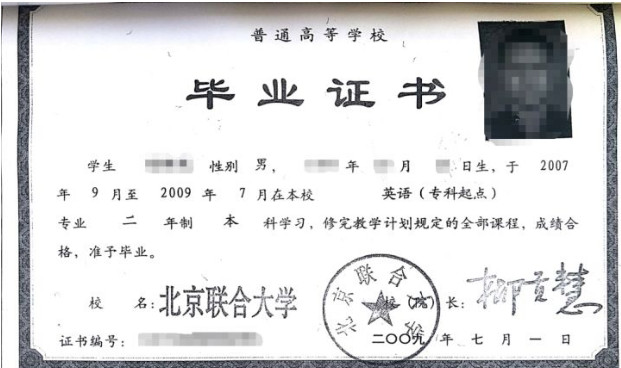 普通高等学校
毕业证书
学生 性别 男， 年 月 日生，于 2007
年 9 月至 2009 年 7 月在本校 英语（专科起点）
专业 二 年制 本 科学习，修完教学计划规定的全部课程，成绩合
格，准予毕业。
校 名：北京联合大学 校（院）长：
证书编号： 二〇〇九年 七 月 一 日
北京联合大学